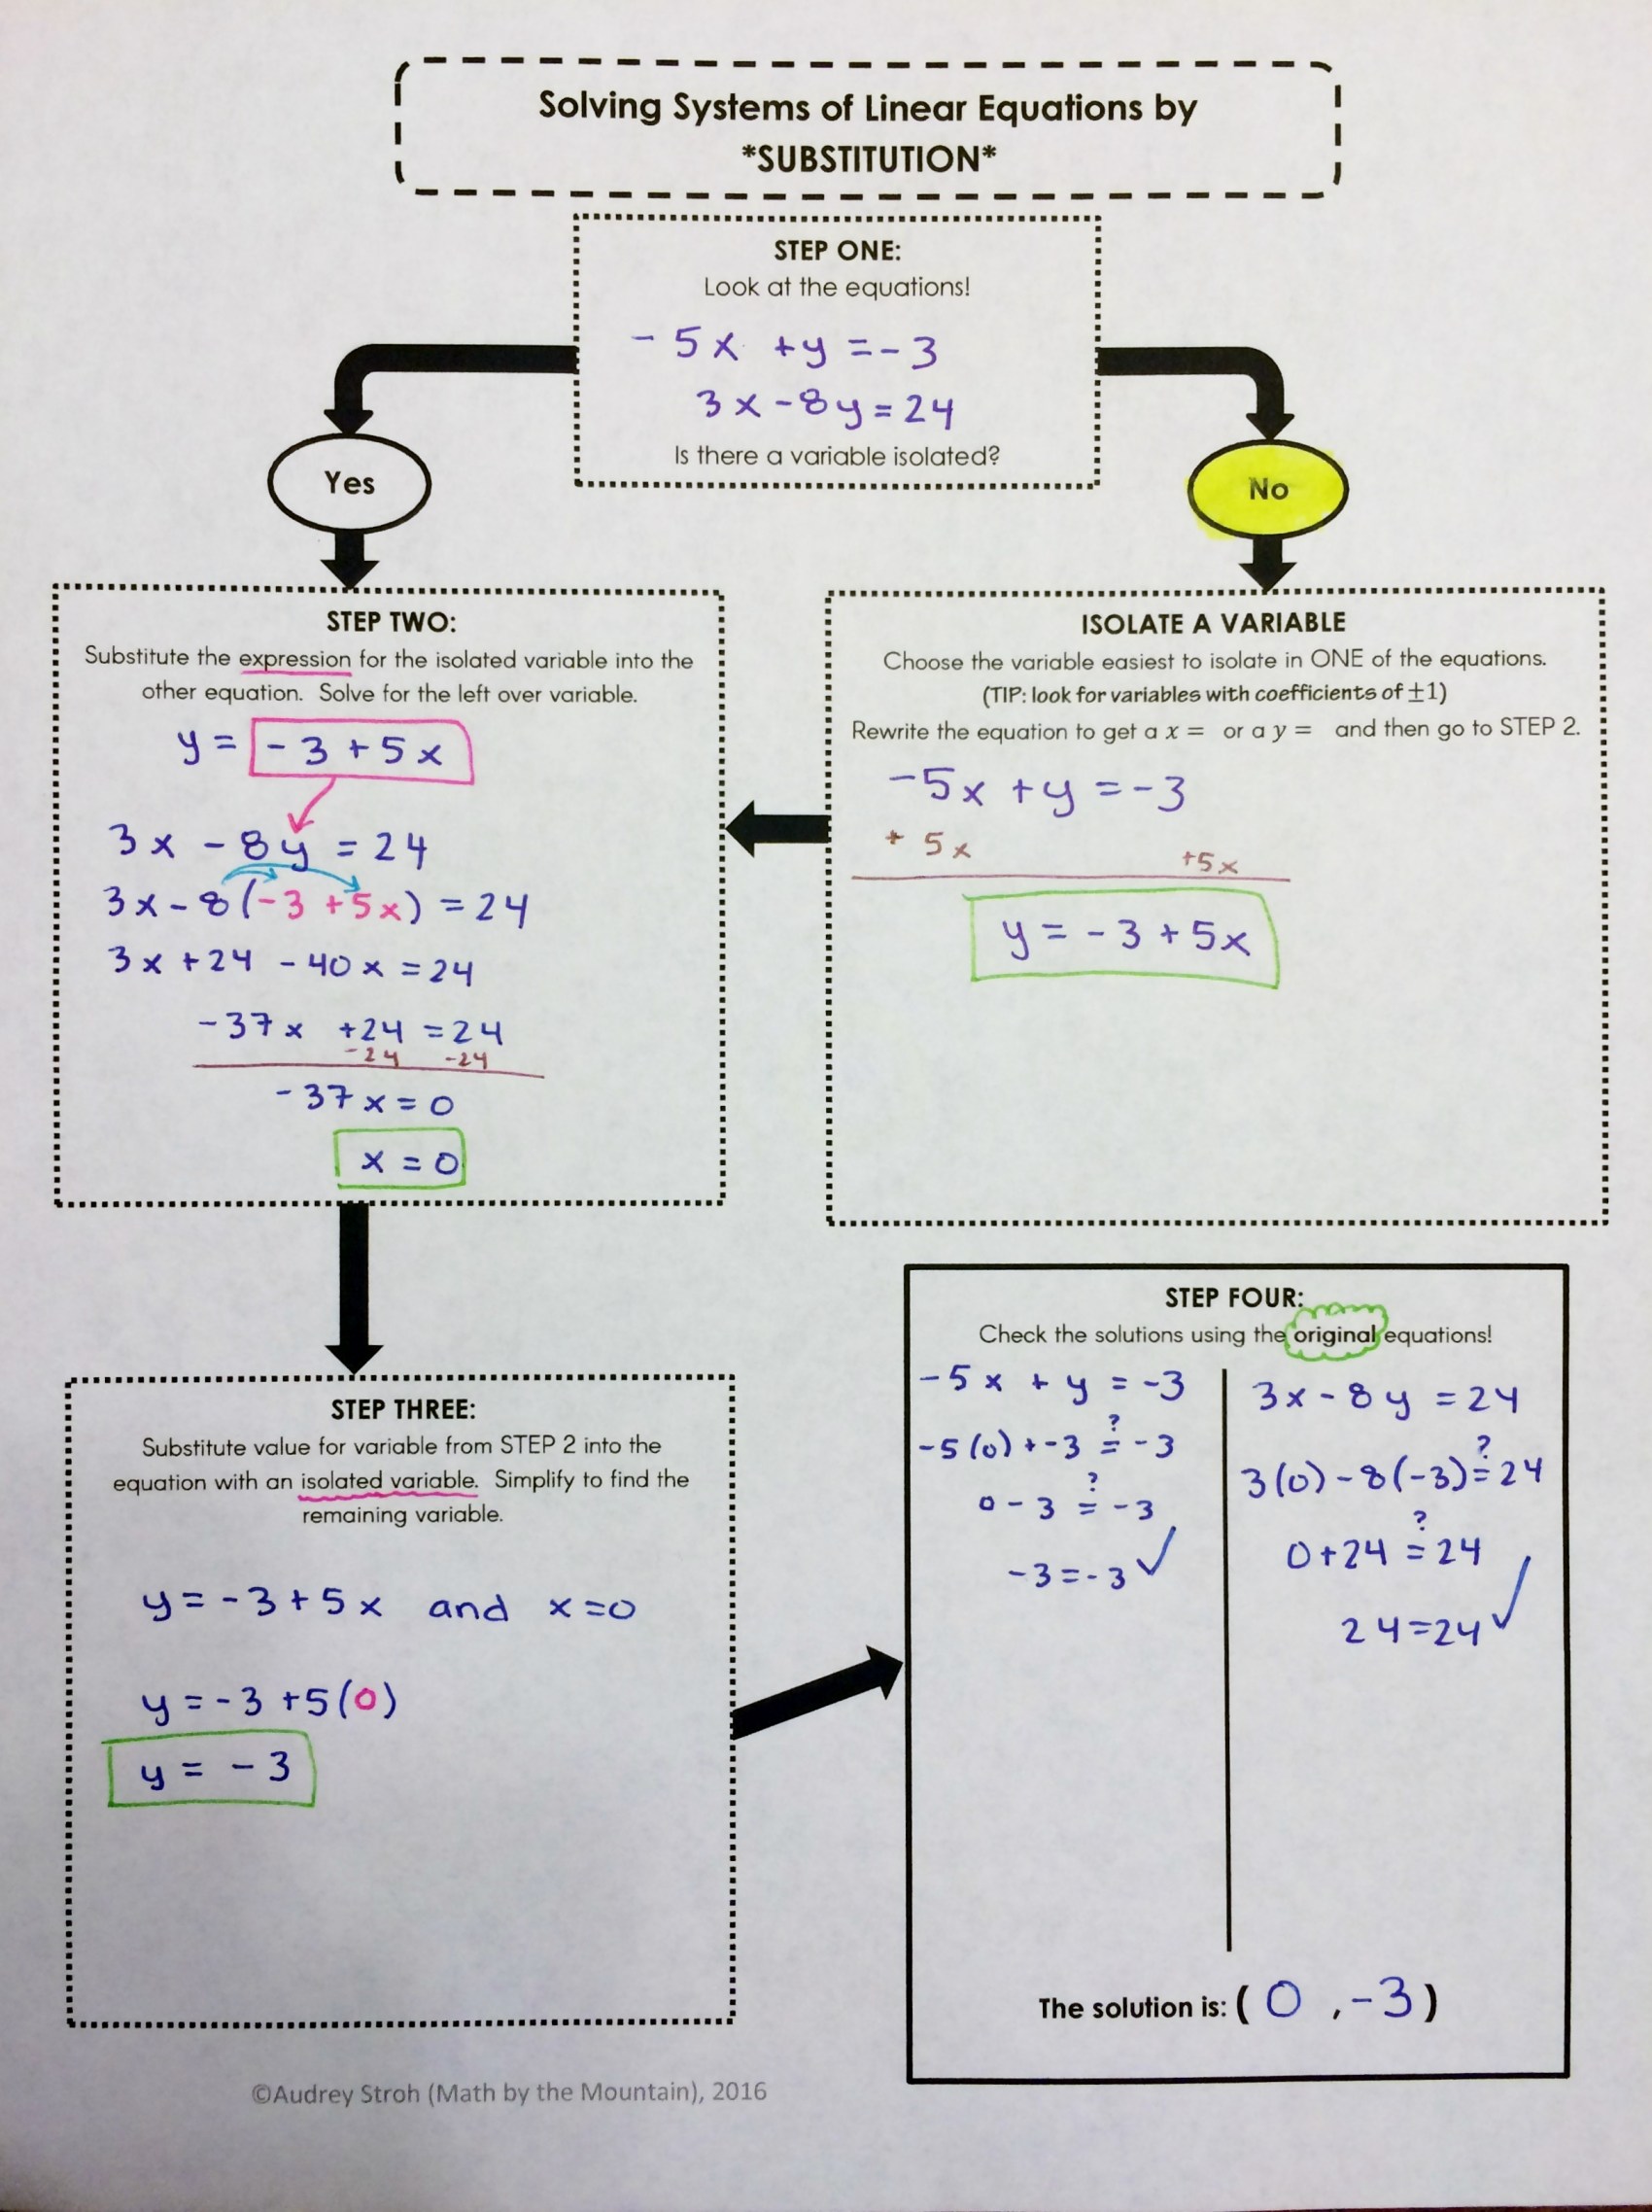 Solving Systems of Linear Equations by
*SUBSTITUTION*
STEP ONE:
Look at the equations!
-5x +y =-3
3x-8y=24
Is there a variable isolated?
Yes
No
ISOLATE A VARIABLE
Choose the variable easiest to isolate in ONE of the equations.
(TIP: look for variables with coefficients of ±1)
Rewrite the equation to get a x = or a y = and then go to STEP 2.
-5x +y =-3
+ 5x +5x
y = -3 +5x
STEP TWO:
Substitute the expression for the isolated variable into the
other equation. Solve for the left over variable.
y = -3 +5x
3x - 8y = 24
3x-8(-3 +5x) = 24
3x +24 -40x =24
-37x +24 =24
-24 -24
-37x=0
x=0
STEP THREE:
Substitute value for variable from STEP 2 into the
equation with an isolated variable. Simplify to find the
remaining variable.
y=-3+5x and x=0
y=-3 +5(0)
y = -3
STEP FOUR:
Check the solutions using the original equations!
-5x + y = -3
?
-5(0)+-3 = -3
?
0-3 = -3
-3=-3 ✓
3x-8y =24
?
3(0)-8(-3)=24
?
0+24 =24
24=24 ✓
The solution is: ( 0 , -3 )
©Audrey Stroh (Math by the Mountain), 2016